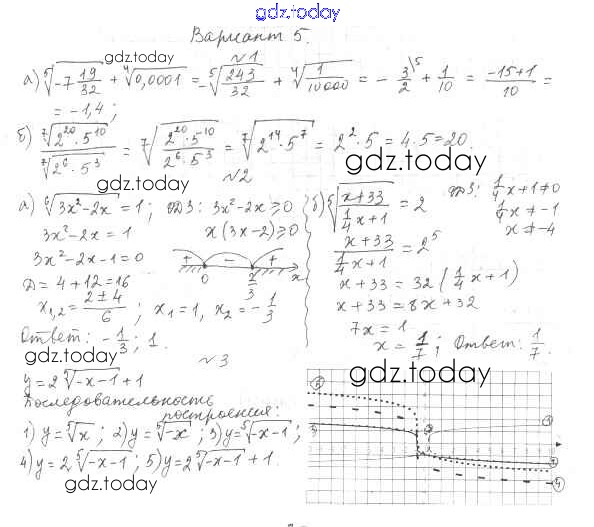 gdz.today
Вариант 5.
gdz.today
№1
а) ⁵√(-7 19/32) + ⁴√0,0001 = -⁵√(243/32) + ⁴√(1/10000) = - 3/2 \5 + 1/10 = (-15+1)/10 =
= -1,4;
б) ⁷√(2²⁰ · 5¹⁰) / ⁷√(2⁶ · 5³) = ⁷√((2²⁰ · 5¹⁰)/(2⁶ · 5³)) = ⁷√(2¹⁴ · 5⁷) = 2² · 5 = 4 · 5 = 20.
gdz.today
gdz.today
№2
а) ⁶√(3x²-2x) = 1; ОДЗ: 3x²-2x ≥ 0
3x²-2x = 1
x(3x-2) ≥ 0
3x²-2x-1=0
+ - +
0 2/3 x
D = 4+12=16
x₁,₂ = (2±4)/6; x₁=1, x₂=-1/3
Ответ: -1/3; 1.
gdz.today
б) ⁵√((x+33)/(1/4 x+1)) = 2
ОДЗ: 1/4 x+1≠0
1/4 x ≠ -1
x ≠ -4
(x+33)/(1/4 x+1) = 2⁵
x+33 = 32(1/4 x+1)
x+33 = 8x+32
7x = 1
x = 1/7; Ответ: 1/7.
gdz.today
№3
y=2 ⁵√(-x-1)+1
Последовательность
построения:
1) y=⁵√x; 2) y=⁵√-x; 3) y=⁵√(-x-1);
4) y=2 ⁵√(-x-1); 5) y=2 ⁵√(-x-1)+1.
gdz.today